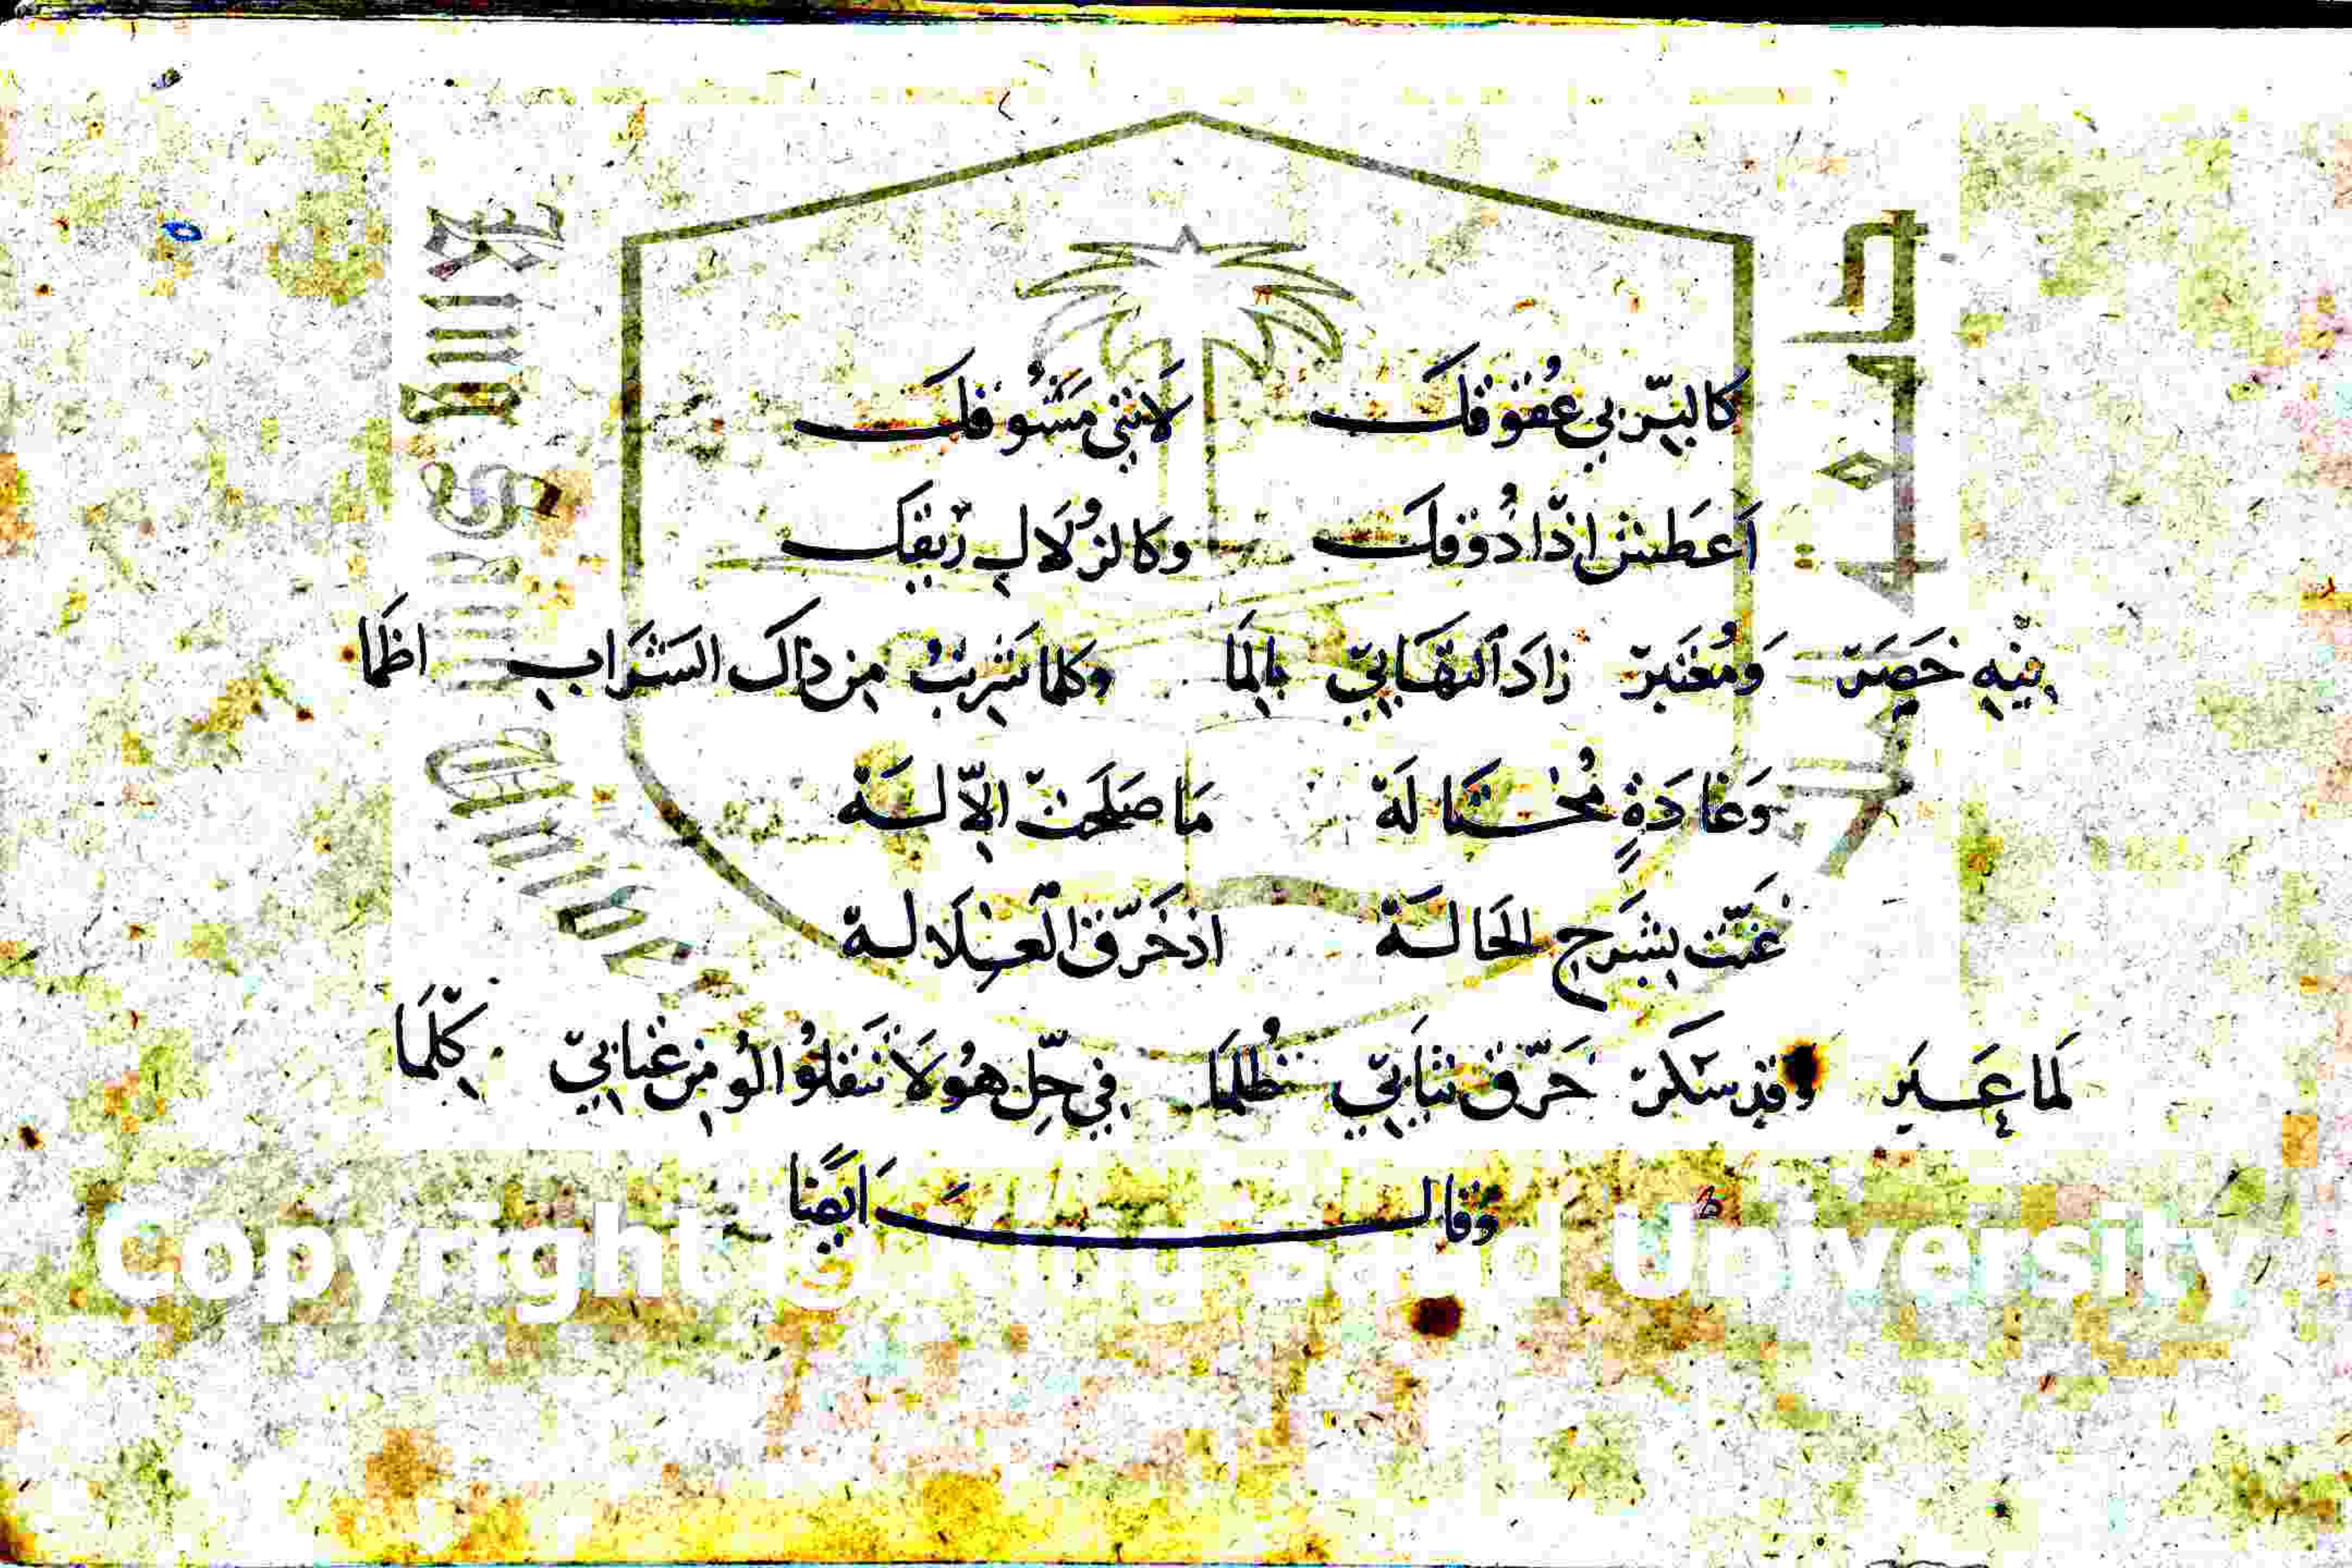 كالبِرّ بي عُقوقك لَانني مَشُوقك
اَعطش اذّا ذُوقك وكالزُلَال رِيقك
فيْهِ خَصَرْ وَمُعْتَبَرْ زادَ اَلتهَابِيّ بِاللَما وكلما شَرِبتُ مِن ذاك الشَرَاب اظَما
وَغادَةٍ مُختَالَة مَا صَلَحَتْ اِلّا لَه
غَنّت بِشَرحِ الحَالَة اذ خَرّق الغِلَالة
لَما عَبَر وقد سَكَرْ خَرّق ثيَابِيّ ظُلمَا في حِلّ هُو لَا تنقلُوا الُو مِن عْتَابيّ كِلْمَا
وَقالَ اَيضًا
Copyright © King Saud University